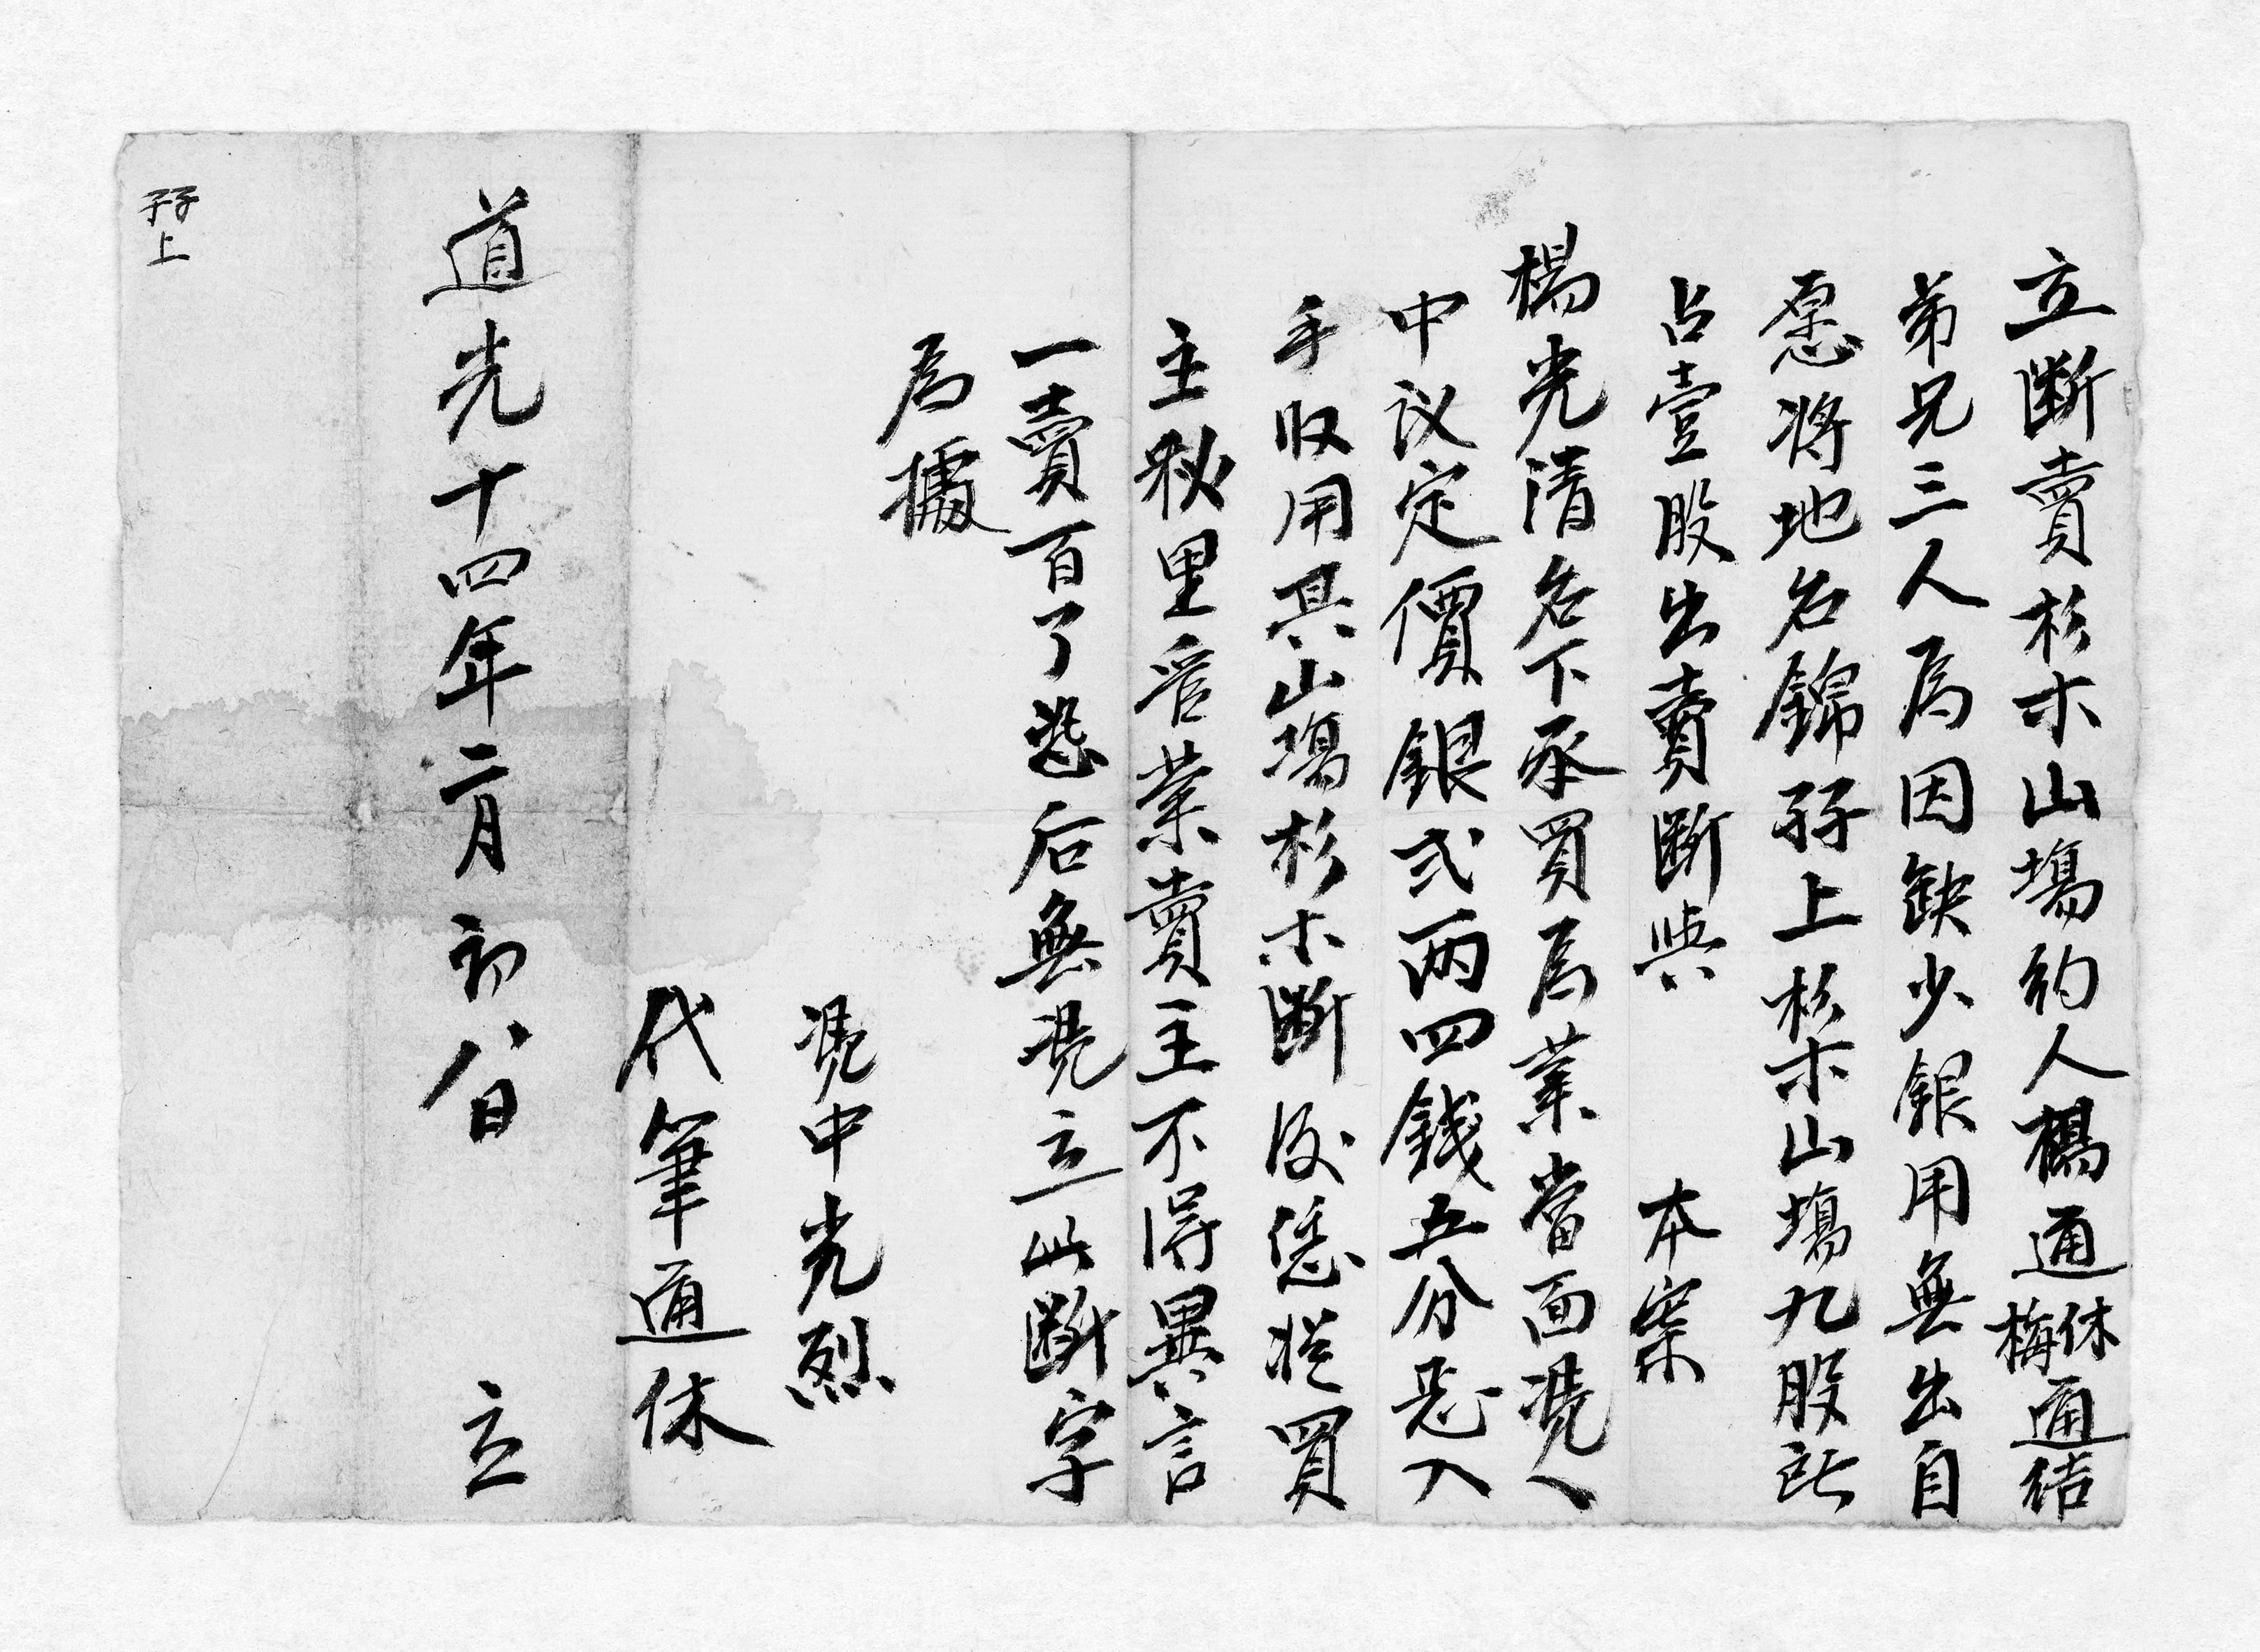 立断賣杉木山場約人楊通休梅通信
弟兄三人為因缺少銀用無出自
愿將地名錦孖上杉木山場九股所
占壹股出賣断與 本寨
楊光清名下承買為業當面憑人
中议定價銀弍两四錢五分悉入
手収用其山場杉木断後恁從買
主秋里管業賣主不得異言
一賣百了恐后無憑立此断字
為據
憑中光烈
代筆通休
道光十四年二月初八日 立
孖上